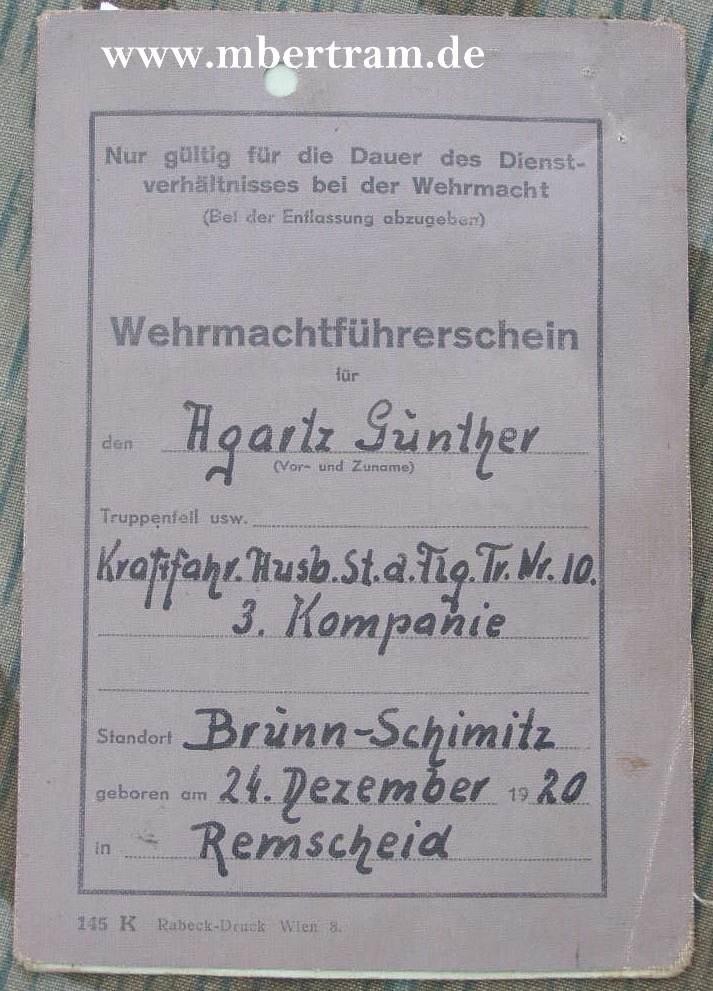 www.mbertram.de
Nur gültig für die Dauer des Dienst-
verhältnisses bei der Wehrmacht
(Bei der Entlassung abzugeben)
Wehrmachtführerschein
für
den Agartz Günther
(Vor- und Zuname)
Truppenteil usw.
Kraftfahr.Ausb.St.d.Flg.Tr.Nr.10.
3. Kompanie
Standort Brünn-Schimitz
geboren am 24. Dezember 1920
in Remscheid
145 K Rabeck-Druck Wien 8.